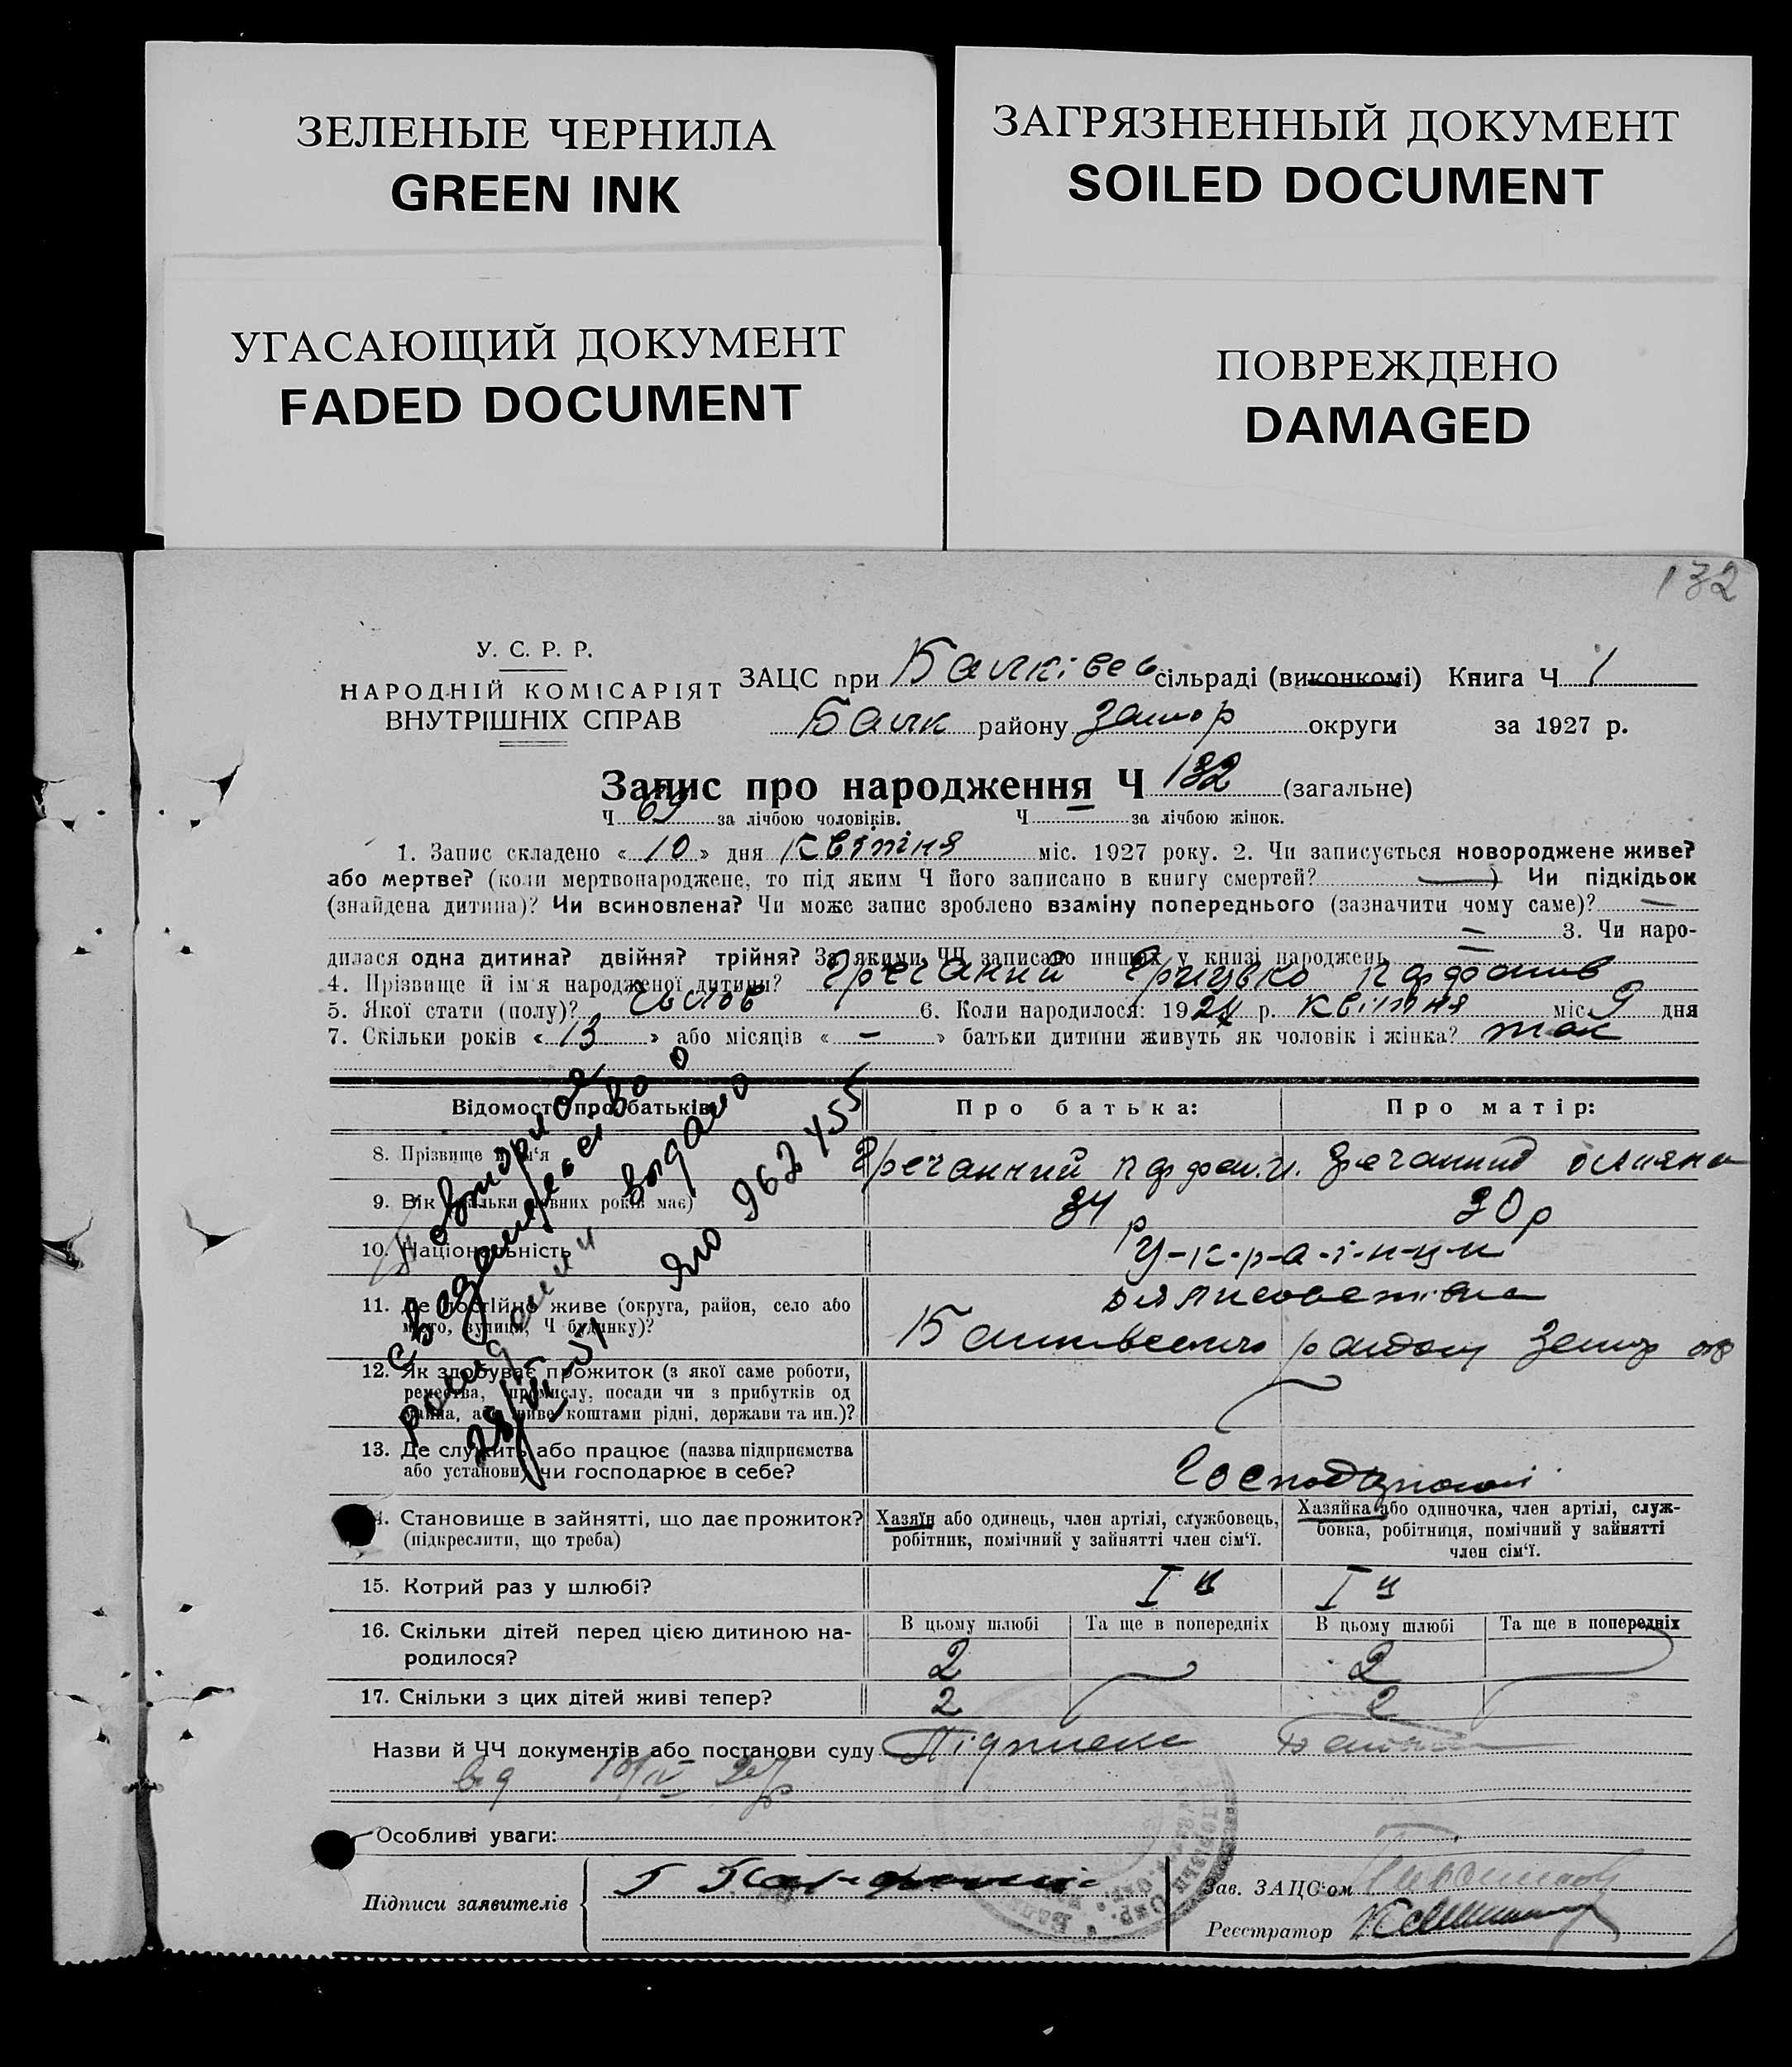 ЗЕЛЕНЫЕ ЧЕРНИЛА
GREEN INK
ЗАГРЯЗНЕННЫЙ ДОКУМЕНТ
SOILED DOCUMENT
УГАСАЮЩИЙ ДОКУМЕНТ
FADED DOCUMENT
ПОВРЕЖДЕНО
DAMAGED
132
У. С. Р. Р.
НАРОДНІЙ КОМІСАРІЯТ
ВНУТРІШНІХ СПРАВ
ЗАЦС при Балківсь сільраді (виконкомі) Книга Ч 1
Балк району Запор округи за 1927 р.
Запис про народження Ч 132 (загальне)
Ч 69 за лічбою чоловіків. Ч — за лічбою жінок.
1. Запис складено « 10 » дня Квітня міс. 1927 року. 2. Чи записується новороджене живе?
або мертве? (коли мертвонароджене, то під яким Ч його записано в книгу смертей? —) Чи підкідьок
(знайдена дитина)? Чи всиновлена? Чи може запис зроблено взаміну попереднього (зазначити чому саме)? —
3. Чи наро-
дилася одна дитина? двійня? трійня? За якими ЧЧ записано инших у книзі народжень
4. Прізвище й ім'я народженої дитини? Гречаний Грицько
5. Якої стати (полу)? 6. Коли народилося: 1927 р. Квітня міс. 9 дня
7. Скільки років « 13 » або місяців « — » батьки дитини живуть як чоловік і жінка? так
Відомості про батьків
Про батька:
Про матір:
8. Прізвище й ім'я
Гречанний
9. Вік (скільки повних років має)
34 р
30 р
10. Національність
У-к-р-а-ї-н-ц-и
11. Де постійно живе (округа, район, село або
місто, вулиця, Ч будинку)?
12. Як здобуває прожиток (з якої саме роботи,
ремества, промислу, посади чи з прибутків од
майна, або живе коштами рідні, держави та ин.)?
13. Де служить або працює (назва підприємства
або установи) чи господарює в себе?
14. Становище в зайнятті, що дає прожиток?
(підкреслити, що треба)
Хазяїн або одинець, член артілі, службовець,
робітник, помічний у зайнятті член сім'ї.
Хазяйка або одиночка, член артілі, служ-
бовка, робітниця, помічний у зайнятті
член сім'ї.
15. Котрий раз у шлюбі?
І й
І й
16. Скільки дітей перед цією дитиною на-
родилося?
В цьому шлюбі
Та ще в попередніх
В цьому шлюбі
Та ще в попередніх
2
2
17. Скільки з цих дітей живі тепер?
2
2
Назви й ЧЧ документів або постанови суду
від 10/IV 27р
Особливі уваги:
Підписи заявителів
Зав. ЗАЦС'ом
Реєстратор
Повторное
свидетельство о
рождении выдано
28/VI-51 962455